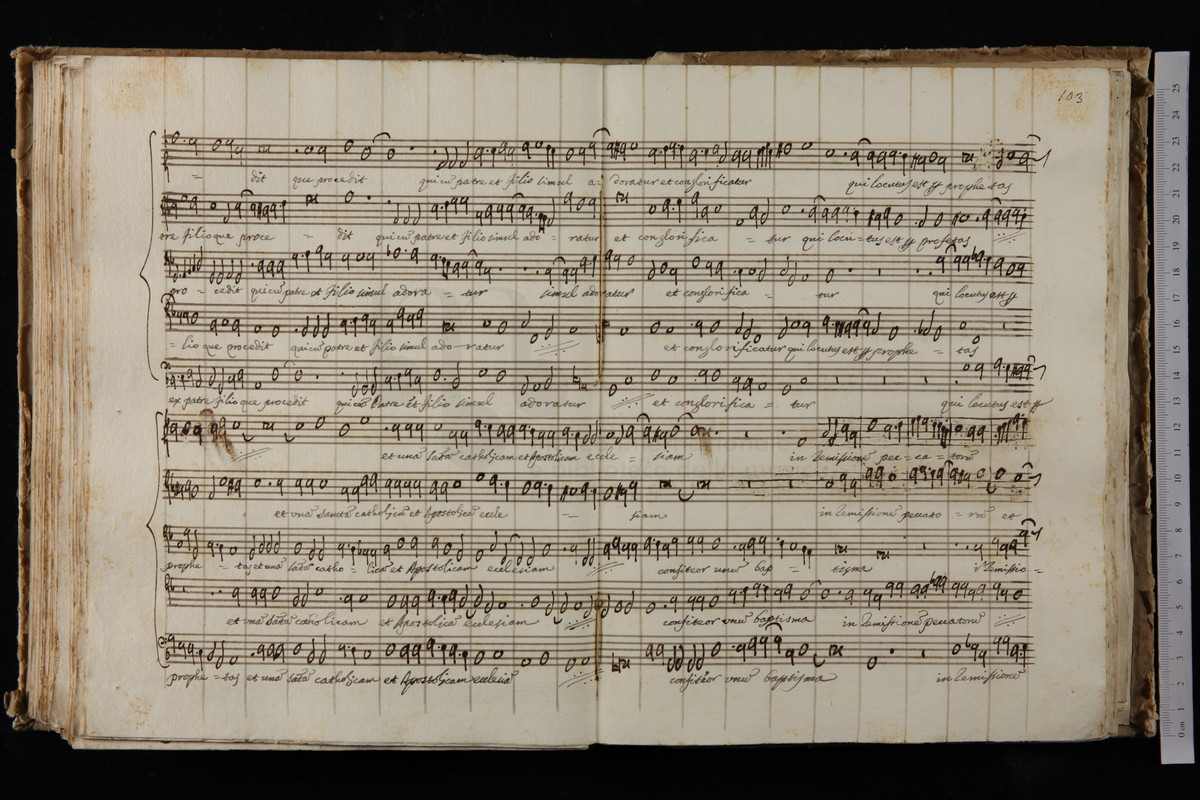 103
= dit que procedit qui cũ patre et filio simul a= doratur et conglorificatur qui locutus est prophe tas
tre filioque proce dit qui cũ patre et filio simul ado = ratur et conglorifica = tur qui locu=tus est profetas
pro = cedit qui cũ patre et filio simul adora = tur simul adoratur et conglorifica = tur qui locutus est
= lio que procedit qui cũ patre et filio simul ado-ratur et conglorificatur qui locutus est prophe = tas
ex patre filio que procedit qui cũ Patre Et filio simul adoratur et conglorifica = tur qui locutus est
et unã Sãtã catholicam et Apostolicam eccle = siam in Remissionẽ pec=ca=torũ
et unã Sanctã catholicã et Apostolicã eccle = siam in Remissionẽ peccato = rũ et
prophe = tas et unã Sãtã catho = licã et Apostolicam ecclesiam confiteor unũ bap = tisma Remissio =
et unã Sãtã catholicam et Apostolicã ecclesiam confiteor unũ baptisma in Remissionẽ peccatorũ
prophe =tas et unã Sãtã catholicam et Apostolicam ecclesiã confiteor unũ baptisma in Remissionẽ
0 cm 1 2 3 4 5 6 7 8 9 10 11 12 13 14 15 16 17 18 19 20 21 22 23 24 25